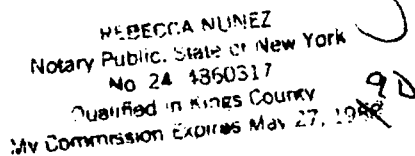 REBECCA NUNEZ
Notary Public, State of New York
No. 24 4860317
Qualified in Kings County 90
My Commission Expires May 27, 19